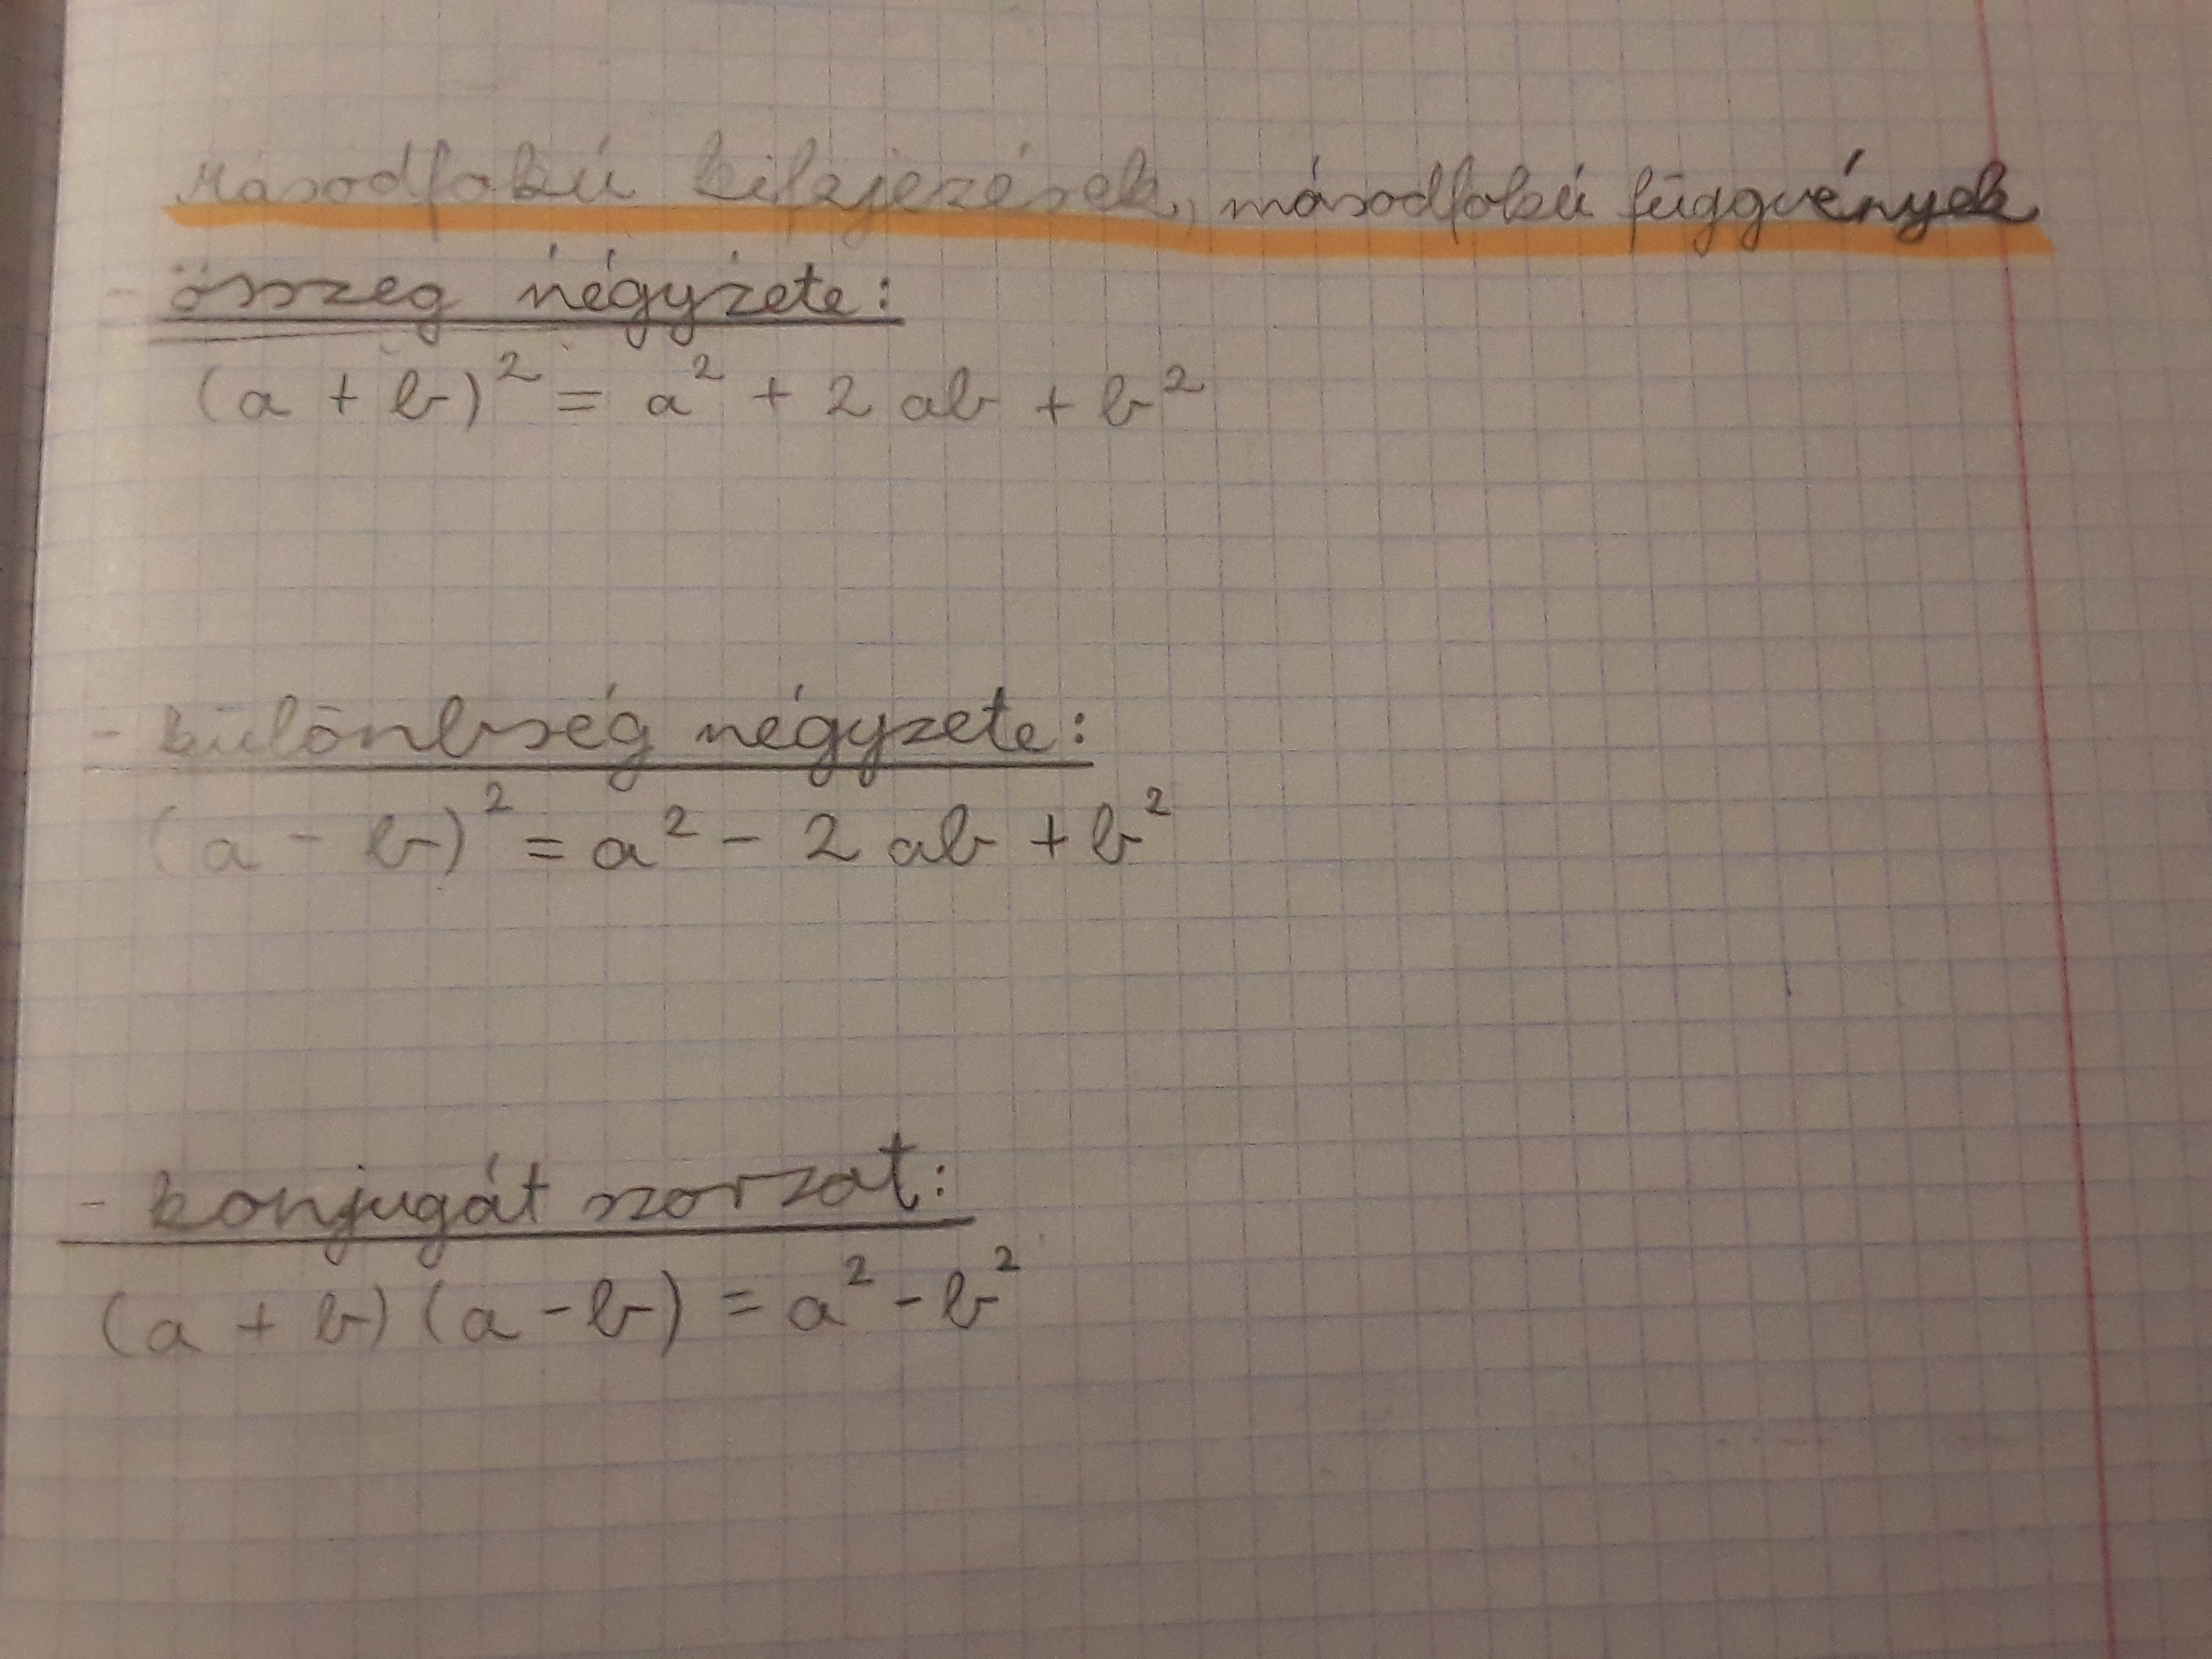 Másodfokú kifejezések, másodfokú függvények
- összeg négyzete:
(a + b)² = a² + 2 ab + b²
- különbség négyzete:
(a - b)² = a² - 2 ab + b²
- konjugát szorzat:
(a + b) (a - b) = a² - b²